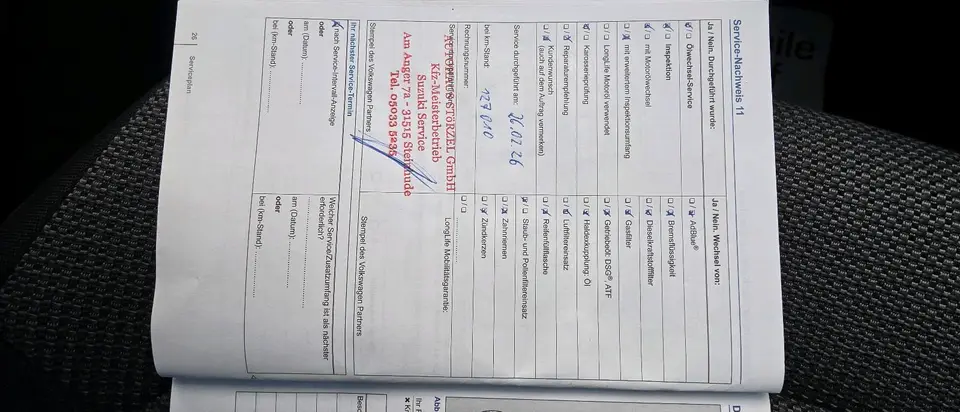 Service-Nachweis 11
Ja / Nein. Durchgeführt wurde:
☒ / ☐ Ölwechsel-Service
☒ / ☐ Inspektion
☒ / ☐ mit Motorölwechsel
☐ / ☒ mit erweitertem Inspektionsumfang
☐ / ☐ LongLife Motoröl verwendet
☒ / ☐ Karosserieprüfung
☐ / ☒ Reparaturempfehlung
☐ / ☒ Kundenwunsch
(auch auf dem Auftrag vermerken)
Service durchgeführt am: 26.02.26
bei km-Stand: 127 010
Rechnungsnummer:
AUTOHAUS STÖRZEL GmbH
Kfz-Meisterbetrieb
Suzuki Service
Am Anger 7a - 31515 Steinhude
Tel. 05033 5235
Stempel des Volkswagen Partners
Ja / Nein. Wechsel von:
☐ / ☒ AdBlue®
☐ / ☒ Bremsflüssigkeit
☐ / ☒ Dieselkraftstofffilter
☐ / ☒ Gasfilter
☐ / ☒ Getriebeöl: DSG®, ATF
☐ / ☒ Haldexkupplung: Öl
☐ / ☒ Luftfiltereinsatz
☐ / ☒ Reifenfüllflasche
☒ / ☐ Staub- und Pollenfiltereinsatz
☐ / ☒ Zahnriemen
☐ / ☒ Zündkerzen
☐ / ☐ ....................
LongLife Mobilitätsgarantie:
Stempel des Volkswagen Partners
Ihr nächster Service-Termin
☒ nach Service-Intervall-Anzeige
oder
am (Datum): ....................
oder
bei (km-Stand): ....................
Welcher Service/Zusatzumfang ist als nächster
erforderlich?
....................
am (Datum): ....................
oder
bei (km-Stand): ....................
26 Serviceplan